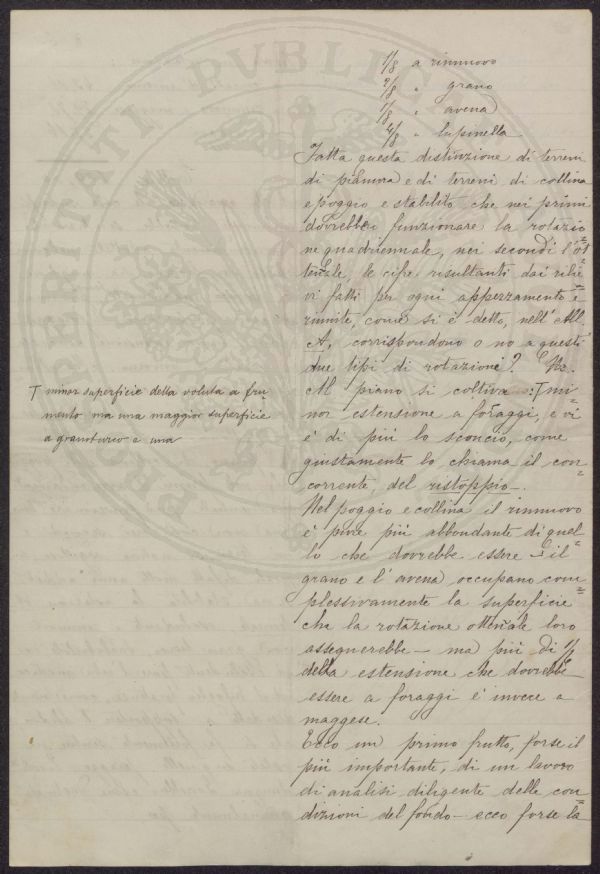 1/8 a rinnuovo
2/8 " grano
1/8 " avena
4/8 " lupinella
Fatta questa distinzione di terreni
di pianura e di terreni di collina
e poggio e stabilito che nei primi
dovrebbe funzionare la rotazio
ne quadriennale, nei secondi l'ot=
tenale, le cifre risultanti dai rilie=
vi fatti per ogni appezzamento e
riunite, come si è detto, nell'All.
A, corrispondono o no a questi
due tipi di rotazione? No.
Al piano si coltiva :T mi=
nor estensione a foraggi, e vi
è di più lo sconcio, come
giustamente lo chiama il con=
corrente, del ristoppio.
Nel poggio e collina il rinnuovo
è pure più abbondante di quel=
lo che dovrebbe essere il
grano e l'avena occupano com=
plessivamente la superficie
che la rotazione ottenale loro
assegnerebbe — ma più di 1/2
della estensione che dovrebbe
essere a foraggi è invece a
maggese.
Ecco un primo frutto, forse il
più importante, di un lavoro
di analisi diligente delle con=
dizioni del fondo — ecco forse la
T minor superficie della voluta a fru
mento ma una maggior superficie
a granoturco e una